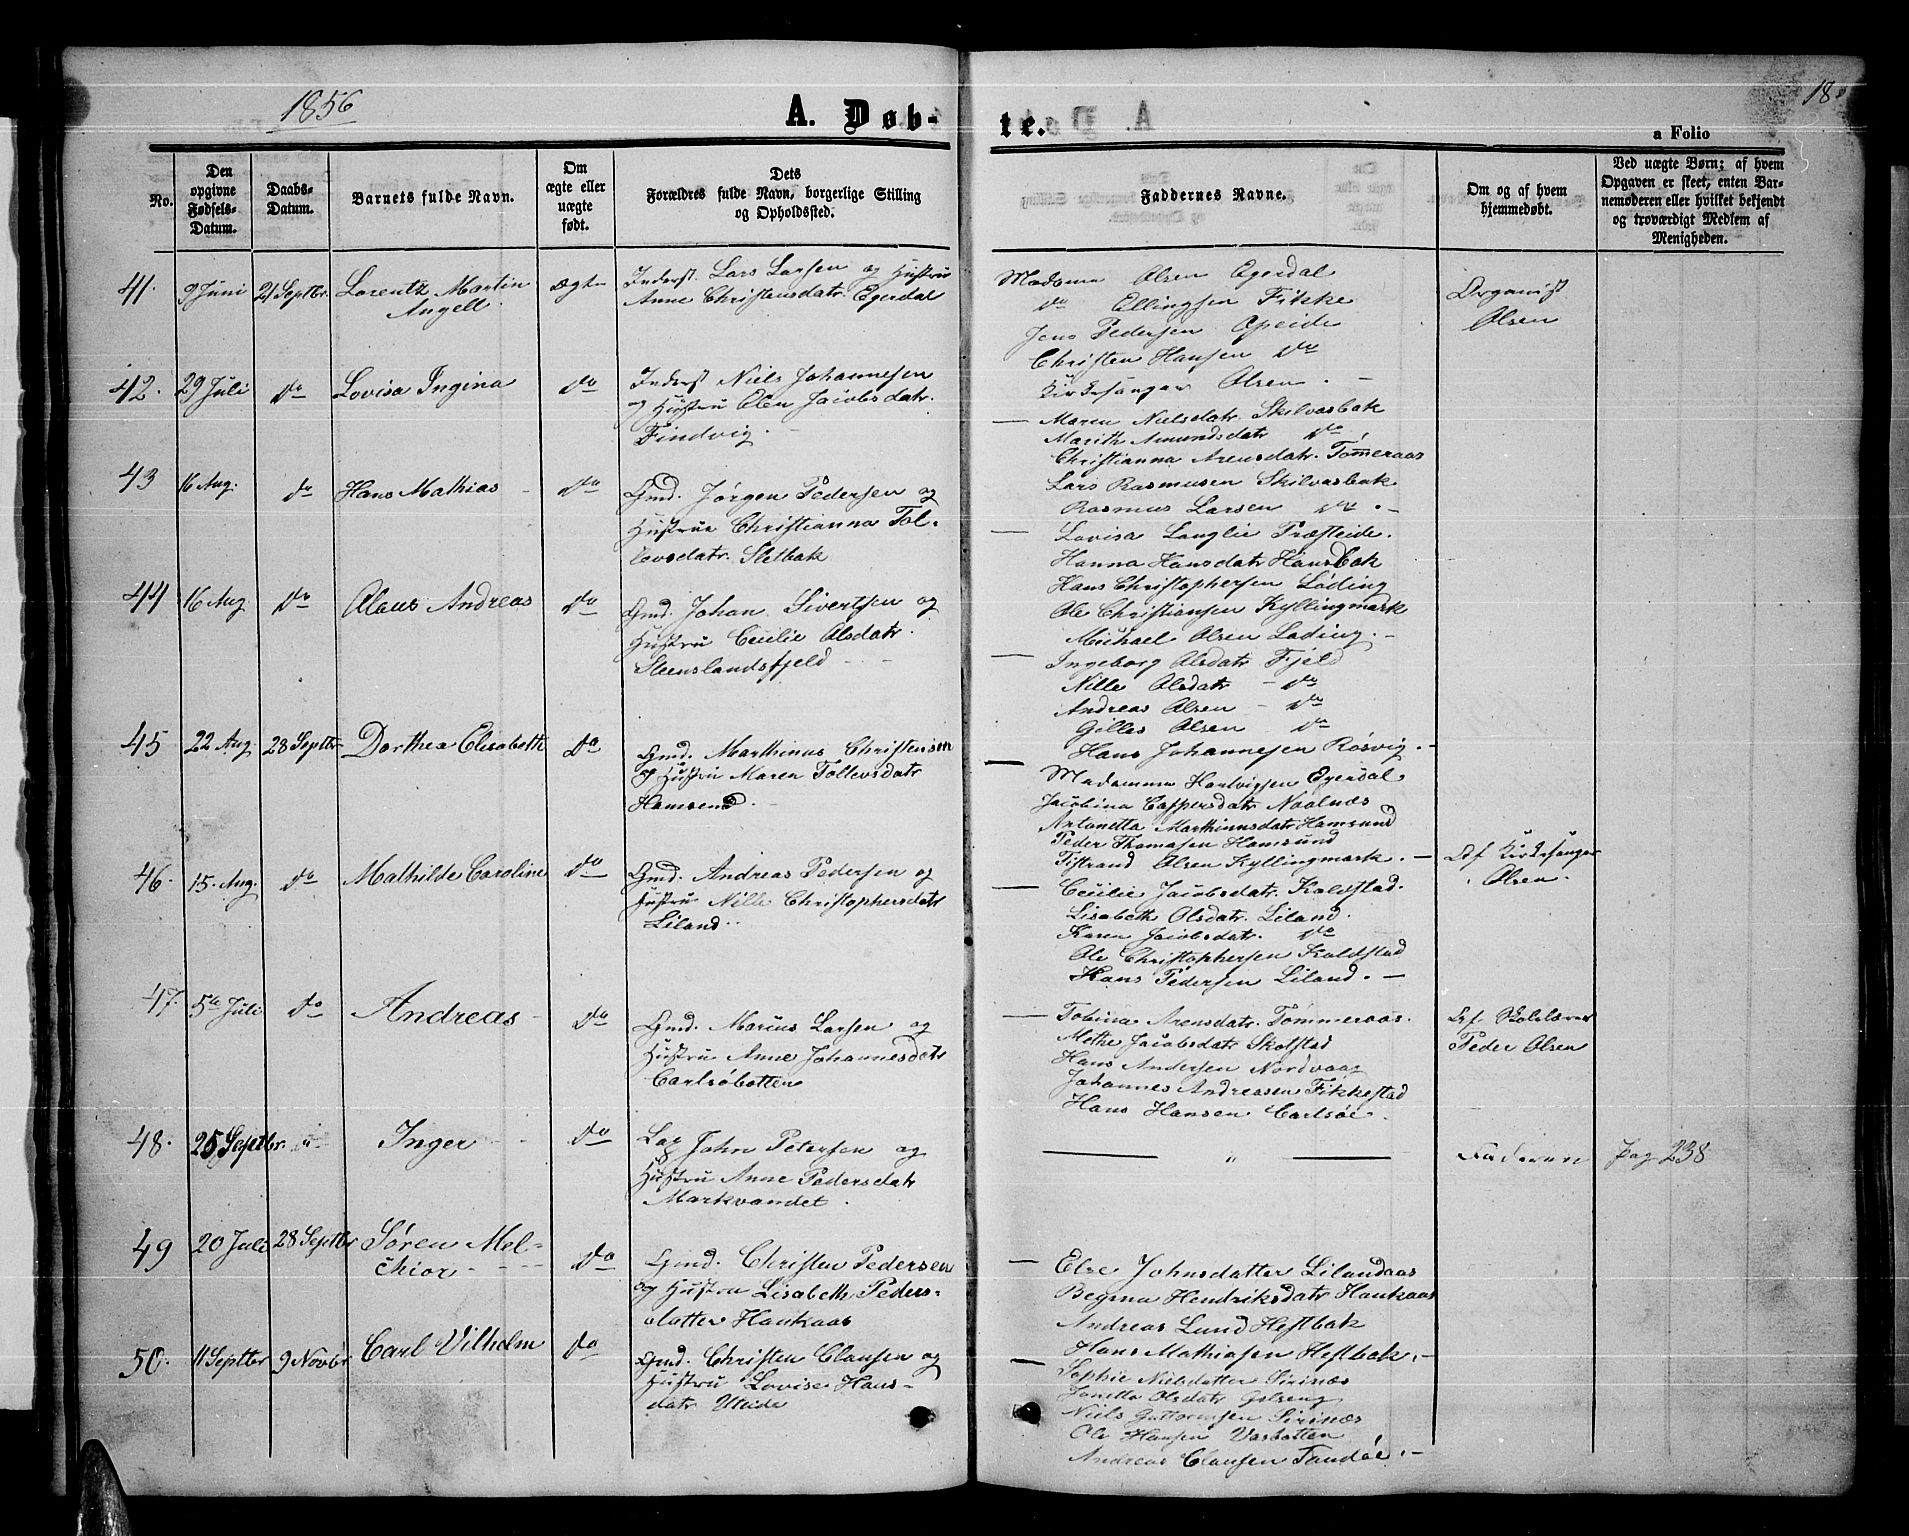 1856
A. Døb-
te.
18
a Folio
No.
Den opgivne Fødsels-Datum.
Daabs-Datum.
Barnets fulde Navn.
Om ægte eller uægte født.
Dets Forældres fulde Navn, borgerlige Stilling og Opholdssted.
Faddernes Navne.
Om og af hvem hjemmedøbt.
Ved uægte Børn; af hvem Opgaven er skeet, enten Barnemoderen eller hvilket bekjendt og troværdigt Medlem af Menigheden.
41. 9 Juni 21 Septbr. Lorentz Martin Angell ægte
Inderst. Lars Larsen og Hustru
Anne Christensdatr. Egerdal
Madame Olsen Egerdal
do Ellingsen Fikke
Jens Pedersen Opeide
Christen Hansen do
Kirkesanger Olsen. -
Organist
Olsen
42. 29 Juli do Lovisa Ingina do
Inderst Niels Johannesen
og Hustru Olen Jacobsdatr.
Findvig. -
— Maren Nielsdatr. Skilvasbak
Marith Amundsdatr do
Christianna Arensdatr. Tømmeraas
Lars Rasmusen Skilvasbak
Rasmus Larsen do. -
43 16 Aug. do Hans Mathias - do
Gmd. Jørgen Pedersen og
Hustrue Christianna Tol-
lovsdatr. Sletbak
— Lovisa Langlie Præsteide.
Hanna Hansdatr Hansbak
Hans Christophersen Løding
Ole Christiansen Kyllingmark
Michael Olsen Løding. -
44 16 Aug do Claus Andreas do
Gmd. Johan Sivertsen og
Hustru Cecilie Olsdatr.
Steenslandsfjeld - -
— Ingeborg Olsdatr Fjeld
Nille Olsdatr - do
Andreas Olsen - do
Gilles Olsen do
Hans Johannesen Røsvig. -
45 22 Aug. 28 Septbr Dorthea Elisabeth do
Gmd. Marthinus Christensen
og Hustru Maren Tollevsdatr
Hamsund. -
— Madamme Hartvigsen Egerdal
Jacobina Caspersdatr Naalnæs
Antonetta Marthinusdatr Hamsund
Peder Thomasen Hamsund
Tistrand Olsen Kyllingmark. -
Af Kirkesanger
Olsen.
46. 15. Aug. do Mathilde Caroline do
Gmd. Andreas Pedersen og
Hustrue Nille Christophersdatr
Liland. -
— Cecilie Jacobsdatr. Kaldstad.
Lisabeth Olsdatr. Liland.
Karen Jacobsdatr. do
Ole Christophersen Kaldstad
Hans Pedersen Liland. -
47. 5te Juli do Andreas - do
Gmd. Marius Larsen og
Hustru Anne Johannesdatr
Carlsøbotten
— Tobina Arensdatr. Tømmeraas.
Methe Jacobsdatr Skotstad
Hans Andersen Nordvaag
Johannes Andreasen Fikkestad
Hans Hansen Carlsøe.
Af Skolelærer
Peder Olsen
48. 25 Septbr. Inger - do
Lap John Petersen og
Hustru Anne Pedersdatr
Markvandet.
— " —
Faderen
Pag 238
49 20 Juli 28 Septbr Søren Mel-
chior - - - do
Gmd. Christen Pedersen
og Hustru Lisabeth Peders-
datter Haukaas
— Else Johnsdatter Lilandaas
Regina Hendriksdatr Haukaas
Andreas Lund Hestbak
Hans Mathiasen Hestbak. -
50. 11 Septbr 9 Novbr. Carl Vilhelm do
Gmd. Christen Clausen og
Hustru Lovise Hans-
datr Uteide
— Sophie Nielsdatter Sirinæs
Janetta Olsdatr
Niels Guttormsen Sirinæs
Ole Hansen Vasbotten
Andreas Clausen Tandøe. -